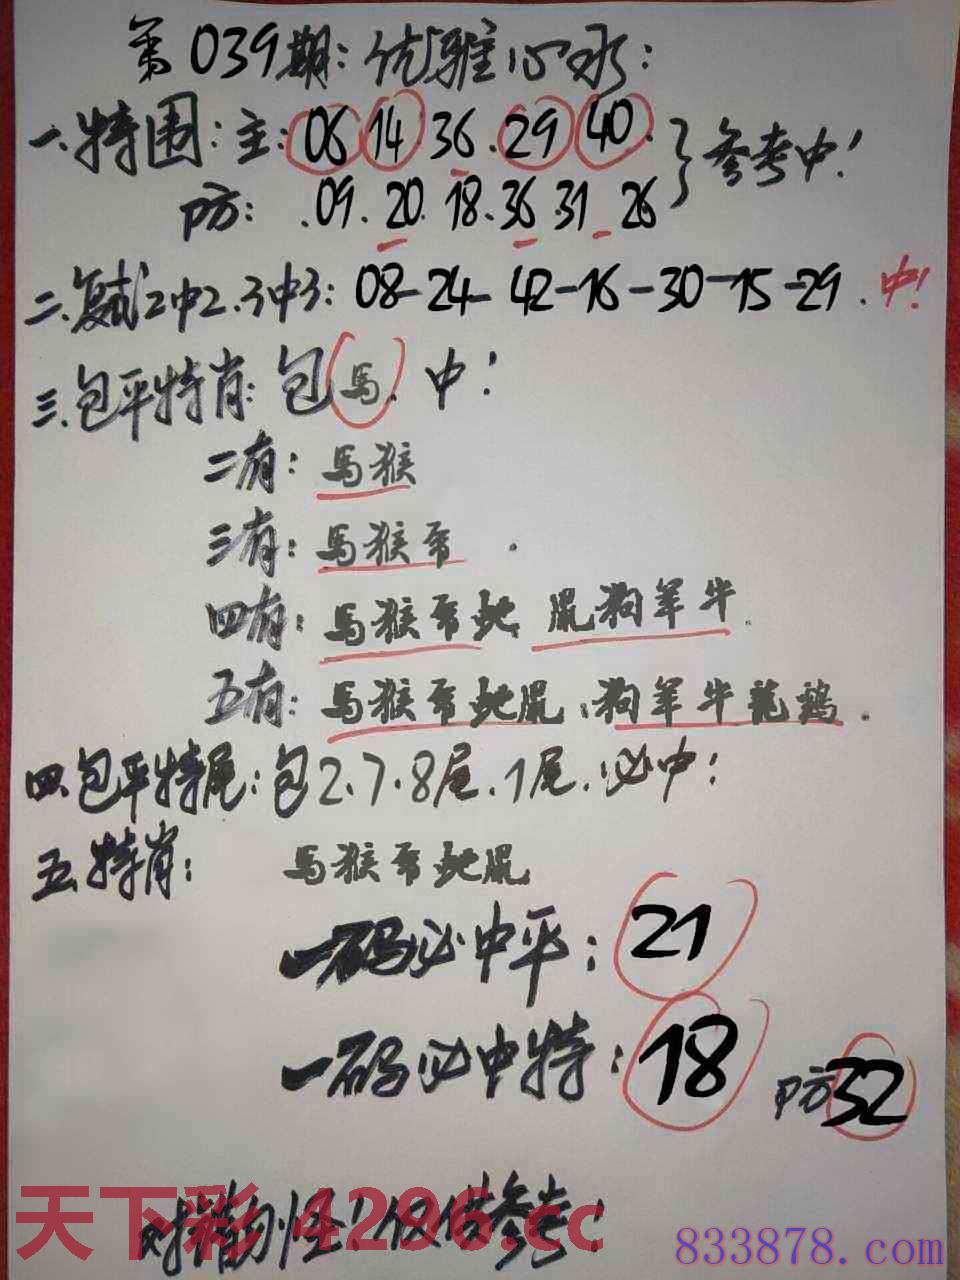 第039期：优雅心水：
一.特围：主：06 14.36.29 40.
防：.09.20.18.36.31 26 参考中！
二.复式2中2.3中3：08-24-42-16-30-15-29.中！
三.包平特肖：包馬.中！
二有：馬猴
三有：馬猴帝.
四有：馬猴帝蛇 鼠狗羊牛.
五有：馬猴帝蛇鼠.狗羊牛龍鶏.
四.包平特尾：包2.7.8尾.1尾.必中！
五.特肖： 馬猴帝蛇鼠
一码必中平：21
一码必中特：18 防32
对错勿怪！仅供参考！
天下彩 4296.cc
833878.com